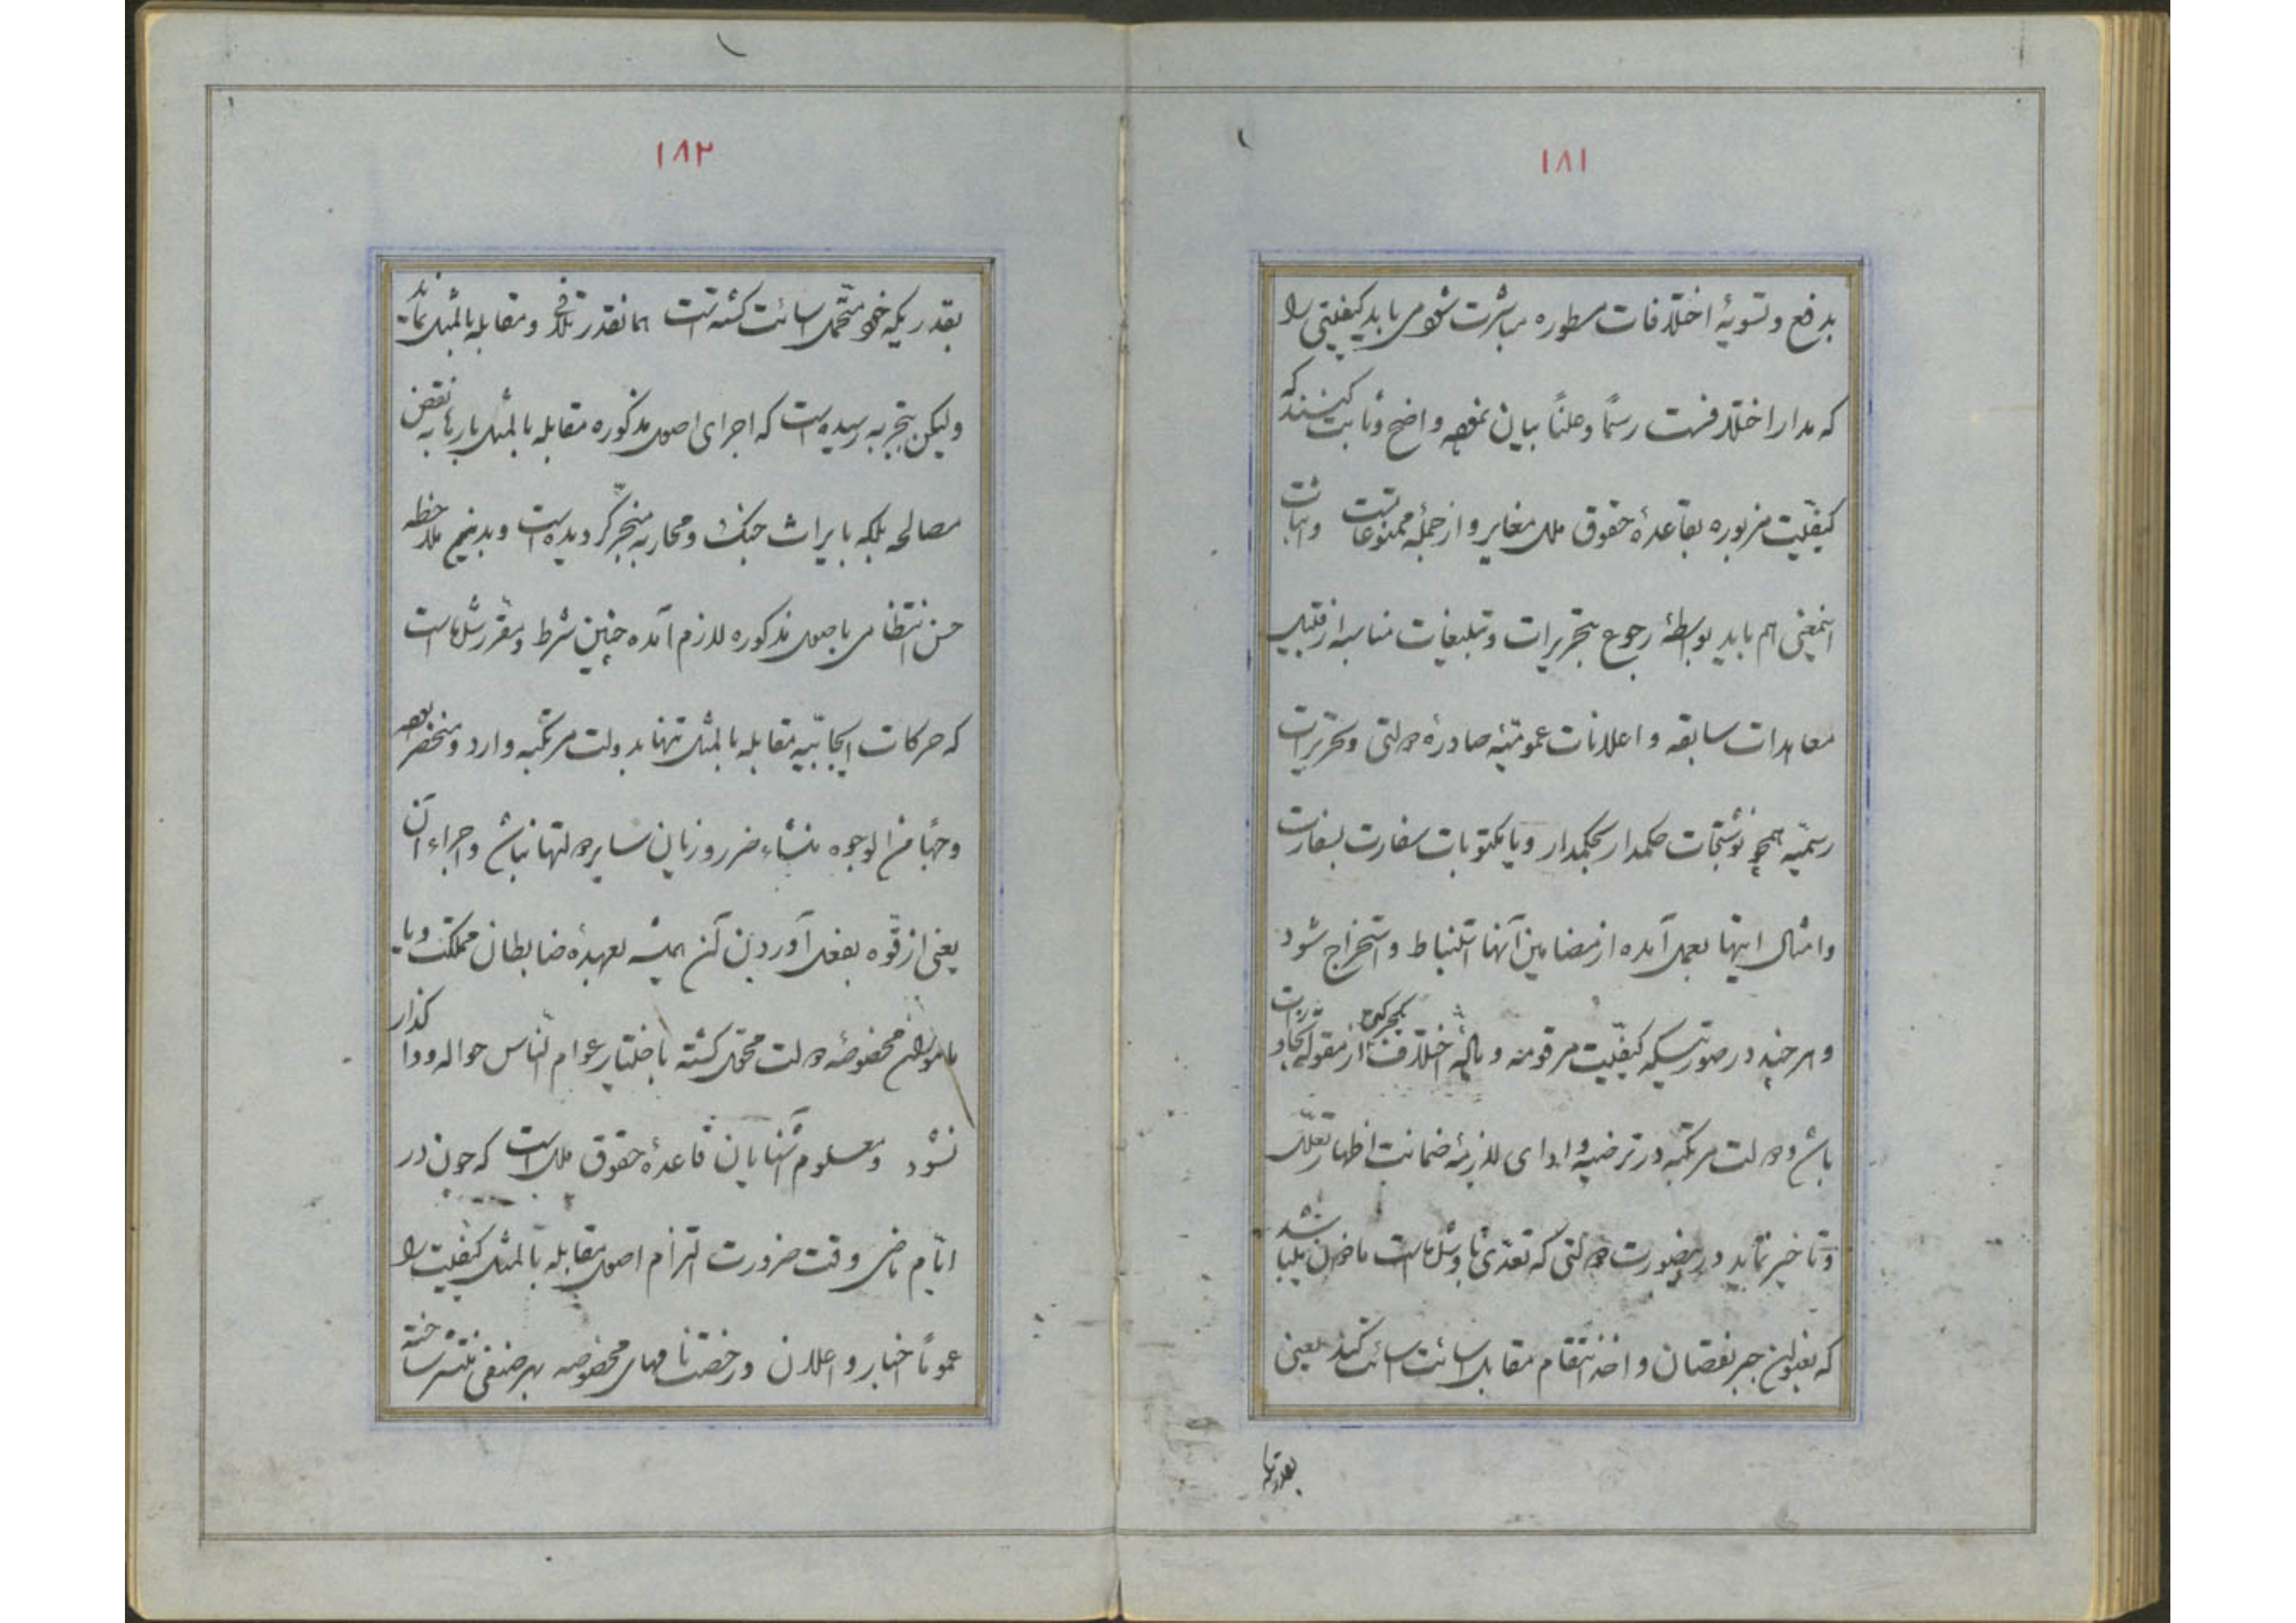 ۱۸۱
بدفع و تسویهٔ اختلافات مسطوره مباشرت شود می باید کیفیتی را
که مدار اختلافست رسماً و علناً بیان نموده واضح و ثابت کنند که
کیفیّت مزبوره بقاعدهٔ حقوق ملل مغایر و از جملهٔ ممنوعاتست و اثبات
اینمعنی هم باید بواسطهٔ رجوع بتحریرات و تبلیغات مناسبه از قبیل
معاهدات سابقه و اعلانات عمومیّهٔ صادرهٔ دولتی و تحریرات
رسمیّه همچو نوشتجات حکمدار بحکمدار و یا مکتوبات سفارت بسفارت
و امثال اینها بعمل آمده از مضامین آنها استنباط و استخراج شود
و هر چند در صورتیکه کیفیّت مرقومه و اختلاف از مقولهٔ
باشد و دولت مرتکبه در ترضیه و ادای لازمهٔ ضمانت اظهار تعلّل
و تأخیر نماید در اینصورت دولتی که تعدّی باو شده است مأذون میباشد
که بعنوان جبر نقصان و اخذ انتقام مقابل اسائت اسائت کند یعنی
بقدریکه
۱۸۲
بقدریکه خود متحمّل اسائت گشته است همانقدر تلافی و مقابله بالمثل نماید
ولیکن بتجربه رسیده است که اجرای اصول مذکوره مقابله بالمثل بارها به نقض
مصالحه بلکه بایراث جنگ و محاربه منجرّ گردیده است و بدینم ملاحظه
حسن انتظامی باصول مذکوره لازم آمده چنین شرط و مقرّر شده است
که حرکات ایجابیّه مقابله بالمثل تنها بدولت مرتکبه وارد و منحصر بوده
وجهاً من الوجوه منشاء ضرر و زیان سایر دولتها نباشد و اجراء آن
یعنی از قوّه بفعل آوردن آن همیشه بعهدهٔ ضابطان مملکت و یا
مأموران مخصوصهٔ دولت محوّل گشته باختیار عوام النّاس حواله و واگذار
نشود و معلوم آشنایان قاعدهٔ حقوق ملل است که چون در
ایّام ماضی وقت ضرورت التزام اصول مقابله بالمثل کیفیّت را
عموماً اخبار و اعلان و رخصتنامهای مخصوصه بهر صنفی منتشر ساخته